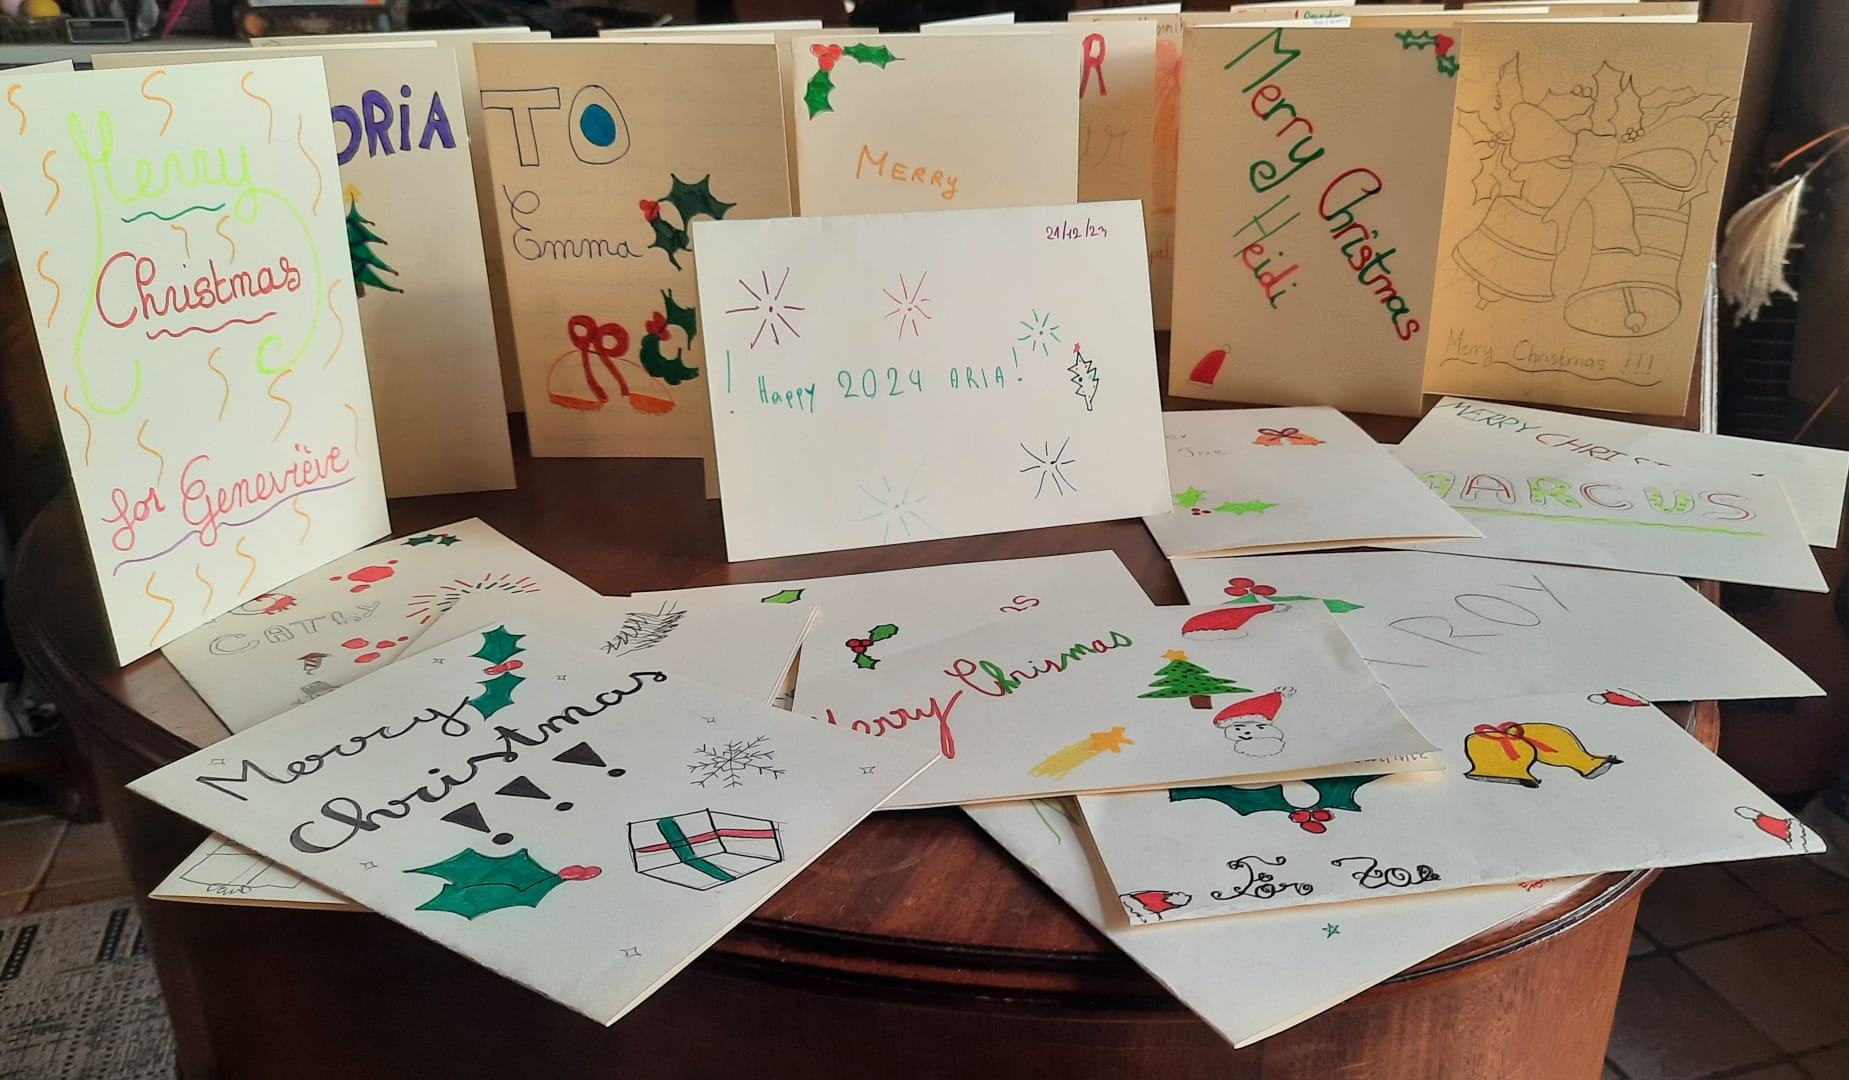 Merry
Christmas
for Geneviève
ORiA
TO
Emma
MERRY
R
Merry
Christmas
Heidi
Merry Christmas !!!
21/12/23
! Happy 2024 ARIA !
JOE
MERRY CHRI
MARCUS
ROY
CATHY
Merry
Christmas
!!!
25
Merry Chrismas
For Zoe